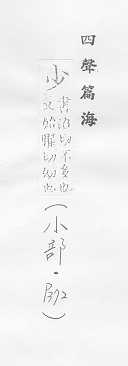 四聲篇海
少 書沼切不多也
又始曜切幼也
(小部・